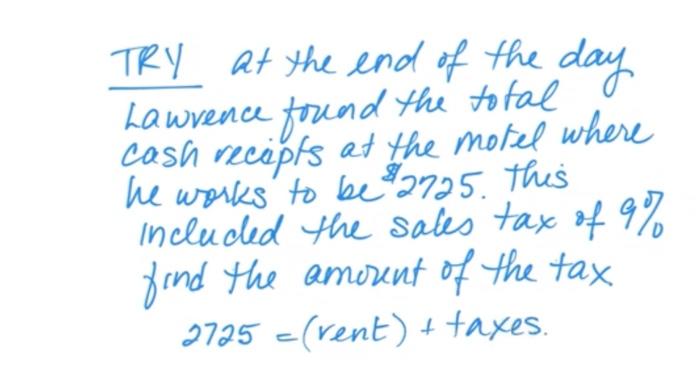 TRY at the end of the day
Lawrence found the total
cash receipts at the motel where
he works to be $2725. This
included the sales tax of 9%
find the amount of the tax
2725 = (rent) + taxes.